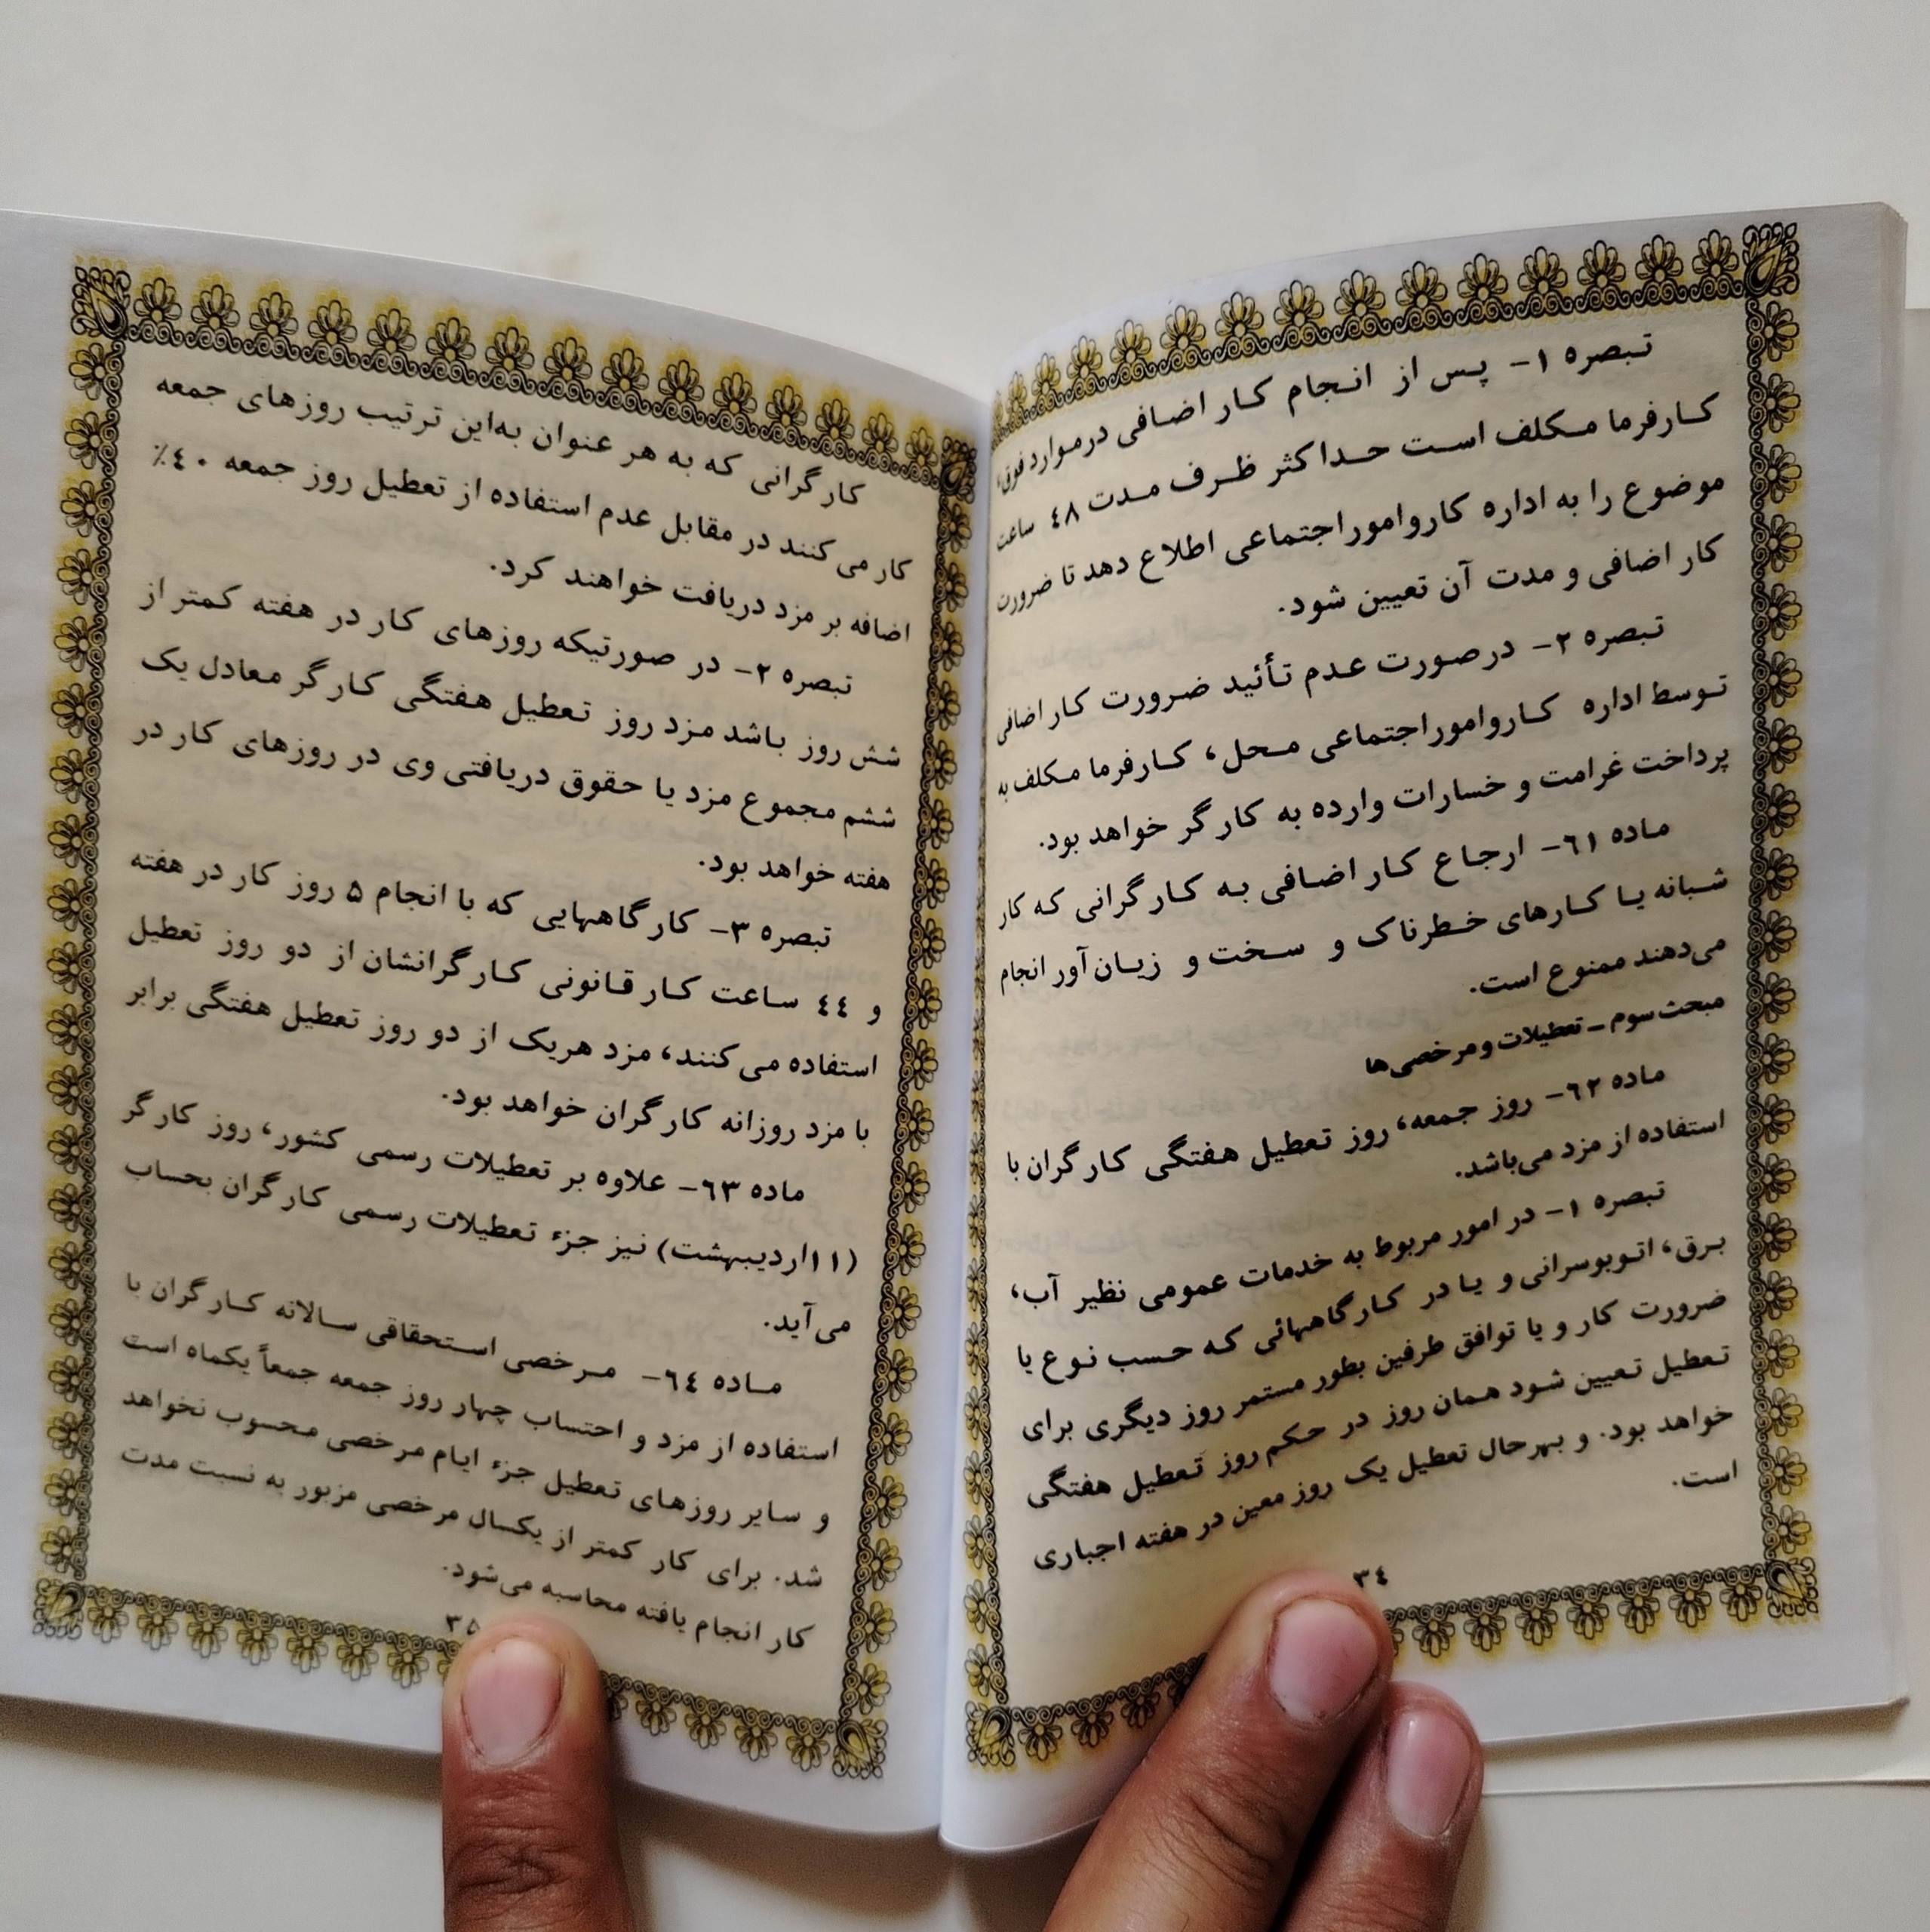 تبصره ۱- پس از انجام کار اضافی درموارد فوق،
کارفرما مکلف است حداکثر ظرف مدت ٤٨ ساعت
موضوع را به اداره کاروامور اجتماعی اطلاع دهد تا ضرورت
کار اضافی و مدت آن تعیین شود.
تبصره ۲- درصورت عدم تأئید ضرورت کار اضافی
توسط اداره کاروامور اجتماعی محل، کارفرما مکلف به
پرداخت غرامت و خسارات وارده به کارگر خواهد بود.
ماده ٦١- ارجاع کار اضافی به کارگرانی که کار
شبانه یا کارهای خطرناک و سخت و زیان‌آور انجام
می‌دهند ممنوع است.
مبحث سوم - تعطیلات و مرخصی‌ها
ماده ٦٢- روز جمعه، روز تعطیل هفتگی کارگران با
استفاده از مزد می‌باشد.
تبصره ۱- در امور مربوط به خدمات عمومی نظیر آب،
برق، اتوبوسرانی و یا در کارگاههائی که حسب نوع یا
ضرورت کار و یا توافق طرفین بطور مستمر روز دیگری برای
تعطیل تعیین شود همان روز در حکم روز تعطیل هفتگی
خواهد بود. و بهرحال تعطیل یک روز معین در هفته اجباری
است.
٣٤
کارگرانی که به هر عنوان به‌این ترتیب روزهای جمعه
کار می‌کنند در مقابل عدم استفاده از تعطیل روز جمعه ٤٠٪
اضافه بر مزد دریافت خواهند کرد.
تبصره ۲- در صورتیکه روزهای کار در هفته کمتر از
شش روز باشد مزد روز تعطیل هفتگی کارگر معادل یک
ششم مجموع مزد یا حقوق دریافتی وی در روزهای کار در
هفته خواهد بود.
تبصره ۳- کارگاههایی که با انجام ۵ روز کار در هفته
و ٤٤ ساعت کار قانونی کارگرانشان از دو روز تعطیل
استفاده می‌کنند، مزد هریک از دو روز تعطیل هفتگی برابر
با مزد روزانه کارگران خواهد بود.
ماده ٦٣- علاوه بر تعطیلات رسمی کشور، روز کارگر
(۱۱اردیبهشت) نیز جزء تعطیلات رسمی کارگران بحساب
می‌آید.
ماده ٦٤- مرخصی استحقاقی سالانه کارگران با
استفاده از مزد و احتساب چهار روز جمعه جمعاً یکماه است
و سایر روزهای تعطیل جزء ایام مرخصی محسوب نخواهد
شد. برای کار کمتر از یکسال مرخصی مزبور به نسبت مدت
کار انجام یافته محاسبه می‌شود.
۳۵